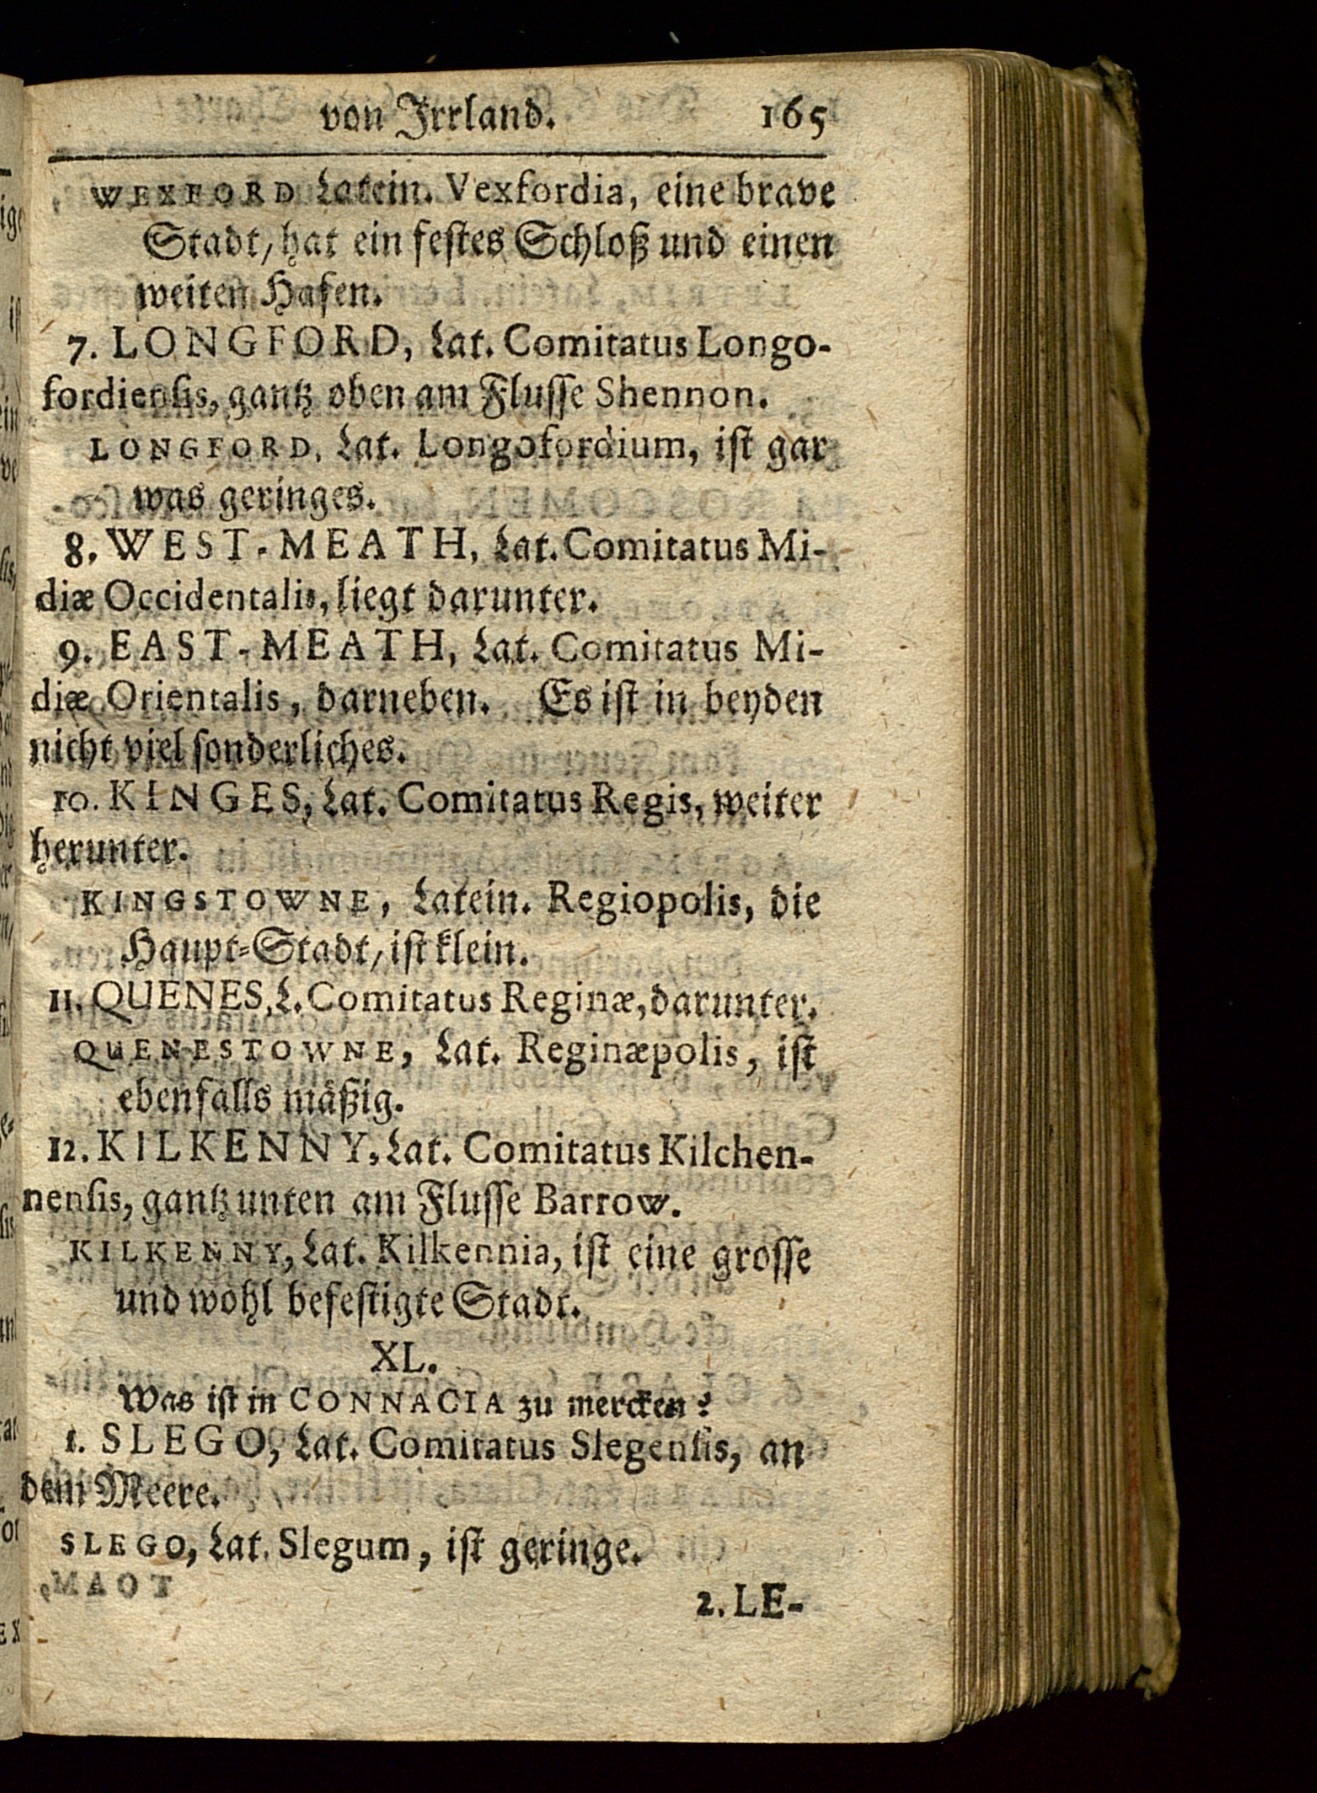 von Irrland. 165
WEXFORD Latein. Vexfordia, eine brave
Stadt/ hat ein festes Schloß und einen
weiten Hafen.
7. LONGFORD, Lat. Comitatus Longo-
fordiensis, gantz oben am Flusse Shennon.
LONGFORD, Lat. Longofordium, ist gar
was geringes.
8. WEST-MEATH, Lat. Comitatus Mi-
diæ Occidentalis, liegt darunter.
9. EAST-MEATH, Lat. Comitatus Mi-
diæ Orientalis, darneben. Es ist in beyden
nicht viel sonderliches.
10. KINGES, Lat. Comitatus Regis, weiter
herunter.
KINGSTOWNE, Latein. Regiopolis, die
Haupt-Stadt/ ist klein.
11. QUENES, L. Comitatus Reginæ, darunter.
QUENESTOWNE, Lat. Reginæpolis, ist
ebenfalls mäßig.
12. KILKENNY, Lat. Comitatus Kilchen-
nensis, gantz unten am Flusse Barrow.
KILKENNY, Lat. Kilkennia, ist eine grosse
und wohl befestigte Stadt.
XL.
Was ist in CONNACIA zu mercken?
1. SLEGO, Lat. Comitatus Slegensis, an
dem Meere.
SLEGO, Lat. Slegum, ist geringe.
2. LE-